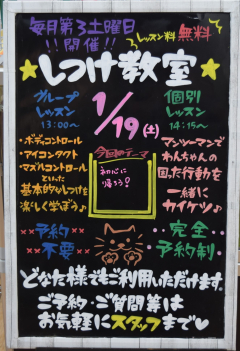 毎月第3土曜日
!!開催!!
レッスン料無料
★しつけ教室★
グループ
レッスン
13:00〜
・ボディコントロール
・アイコンタクト
・マズルコントロール
といった
基本的なしつけを
楽しく学ぼう♪
1/19(土)
今回のテーマ
初心に
帰ろう?
個別
レッスン
14:15〜
マンツーマンで
わんちゃんの
困った行動を
一緒に
カイケツ♪
××予約××
不要
完全
予約制
どなた様でもご利用いただけます。
ご予約・ご質問等は
お気軽にスタッフまで♡